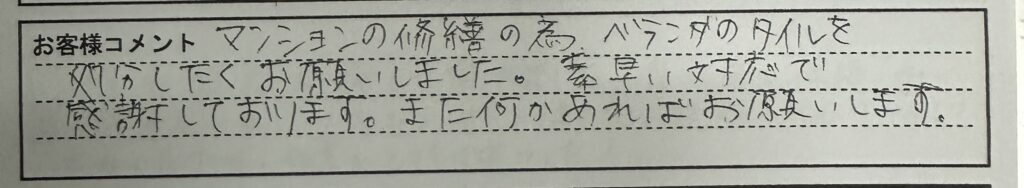 お客様コメント マンションの修繕の為、ベランダのタイルを
処分したくお願いしました。素早い対応で
感謝しております。また何かあればお願いします。